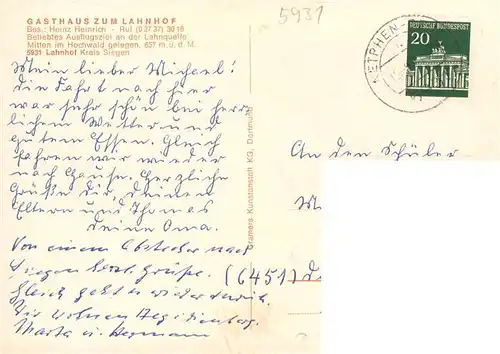 5931
GASTHAUS ZUM LAHNHOF
Bes.: Heinz Heinrich - Ruf (0 27 37) 3916
Beliebtes Ausflugsziel an der Lahnquelle
Mitten im Hochwald gelegen, 657 m ü. d. M.
5931 Lahnhof Kreis Siegen
Mein lieber Michael!
die Fahrt nach hier
war sehr schön bei herr
lichem Wetter und
gutem Essen. Gleich
fahren wir wieder
nach Hause. Herzliche
Grüße Dir, deinen
Eltern und Thomas
deine Oma.
Von einem Abstecher nach
Siegen herzl. Grüße.
Gleich geht es wieder zurück.
Wir wohnen Aegidienberg
Marta u. Hermann
Cramers Kunstanstalt KG, Dortmund
NETPHEN
20
DEUTSCHE BUNDESPOST
An den Schüler
M
(6451) D